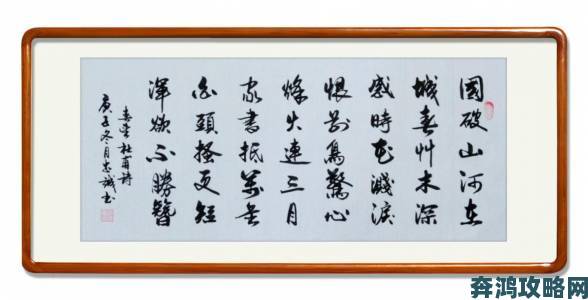 國破山河在
城春艸木深
感時花濺淚
恨別鳥驚心
烽火連三月
家書抵萬金
白頭搔更短
渾欲不勝簪
春望 杜甫詩
庚子冬月忠誠書
奔鸿攻略网